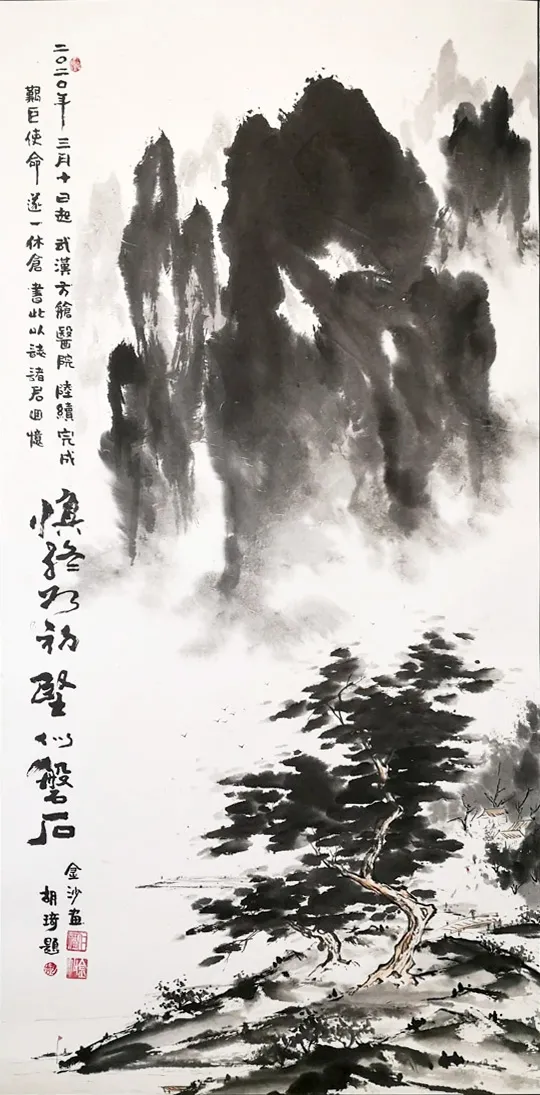 二〇二〇年三月十日起武漢方艙醫院陸續完成
艱巨使命遂一休倉書此以誌諸君回憶
慎終如初堅似磐石
金沙畫
胡琦題